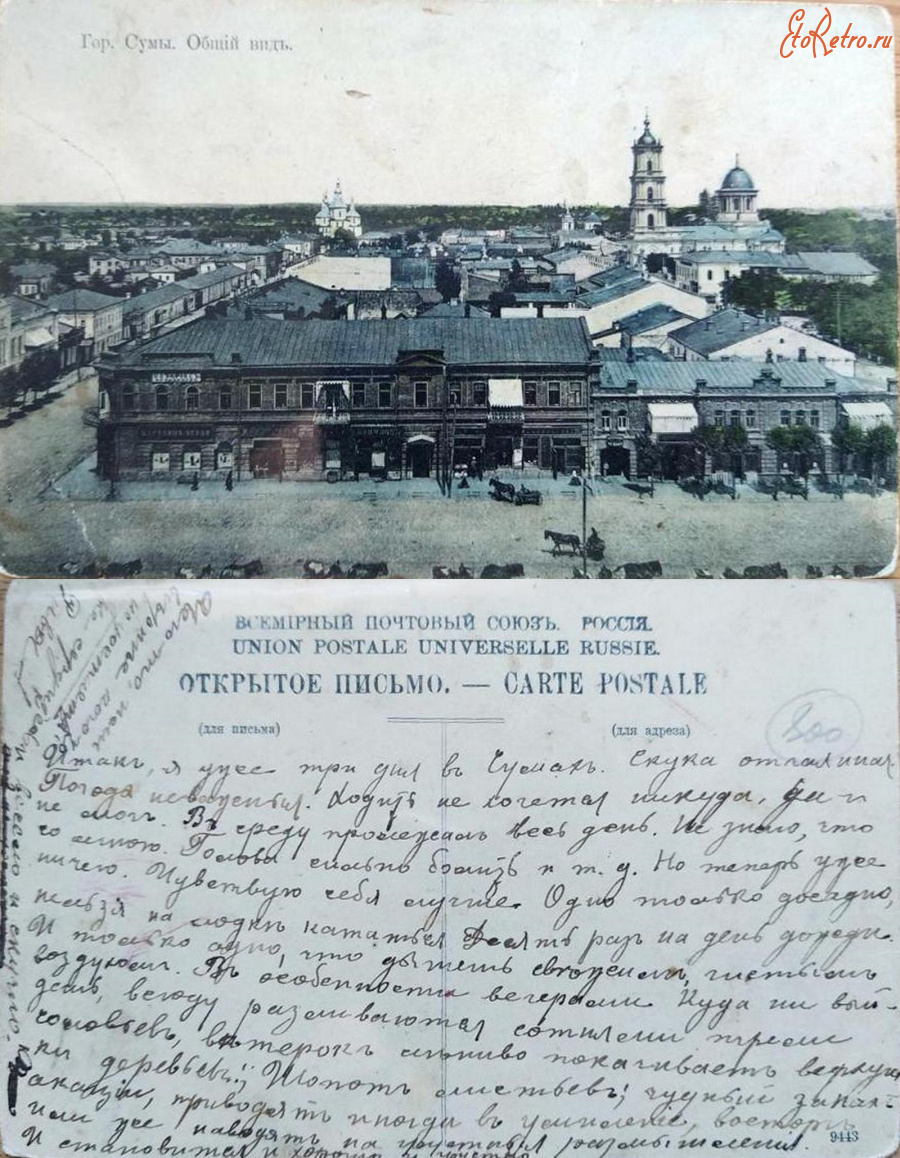 Гор. Сумы. Общій видъ.
EtoRetro.ru
ВСЕМІРНЫЙ ПОЧТОВЫЙ СОЮЗЪ. РОССІЯ.
UNION POSTALE UNIVERSELLE RUSSIE.
ОТКРЫТОЕ ПИСЬМО. — CARTE POSTALE
(для письма)
(для адреса)
300
Итакъ, я уже три дня въ Сумахъ. Скука отчаянная.
Погода неважная. Ходить не хочется никуда, да и
не могъ. Въ среду пролежалъ весь день. Не знаю, что
со мною. Голова сильно болитъ и т. д. Но теперь уже
ничего. Чувствую себя лучше. Одно только досадно,
нельзя на лодкѣ кататься. Десять разъ на день дожди.
И только одно, что дышешь свѣжимъ, чистымъ
воздухомъ. Въ особенности вечерами. Куда ни вый-
дешь, всюду разливаются сотнями трели
соловьевъ, вѣтерокъ лѣниво покачиваетъ верхуш
ки деревьевъ!; Шопотъ листьевъ; чудный запахъ
акаціи, приводятъ иногда въ умиленіе, восторгъ
или уже наводятъ на грустныя размышленія.
И становится и хорошо и грустно
весело и скучно.
9443